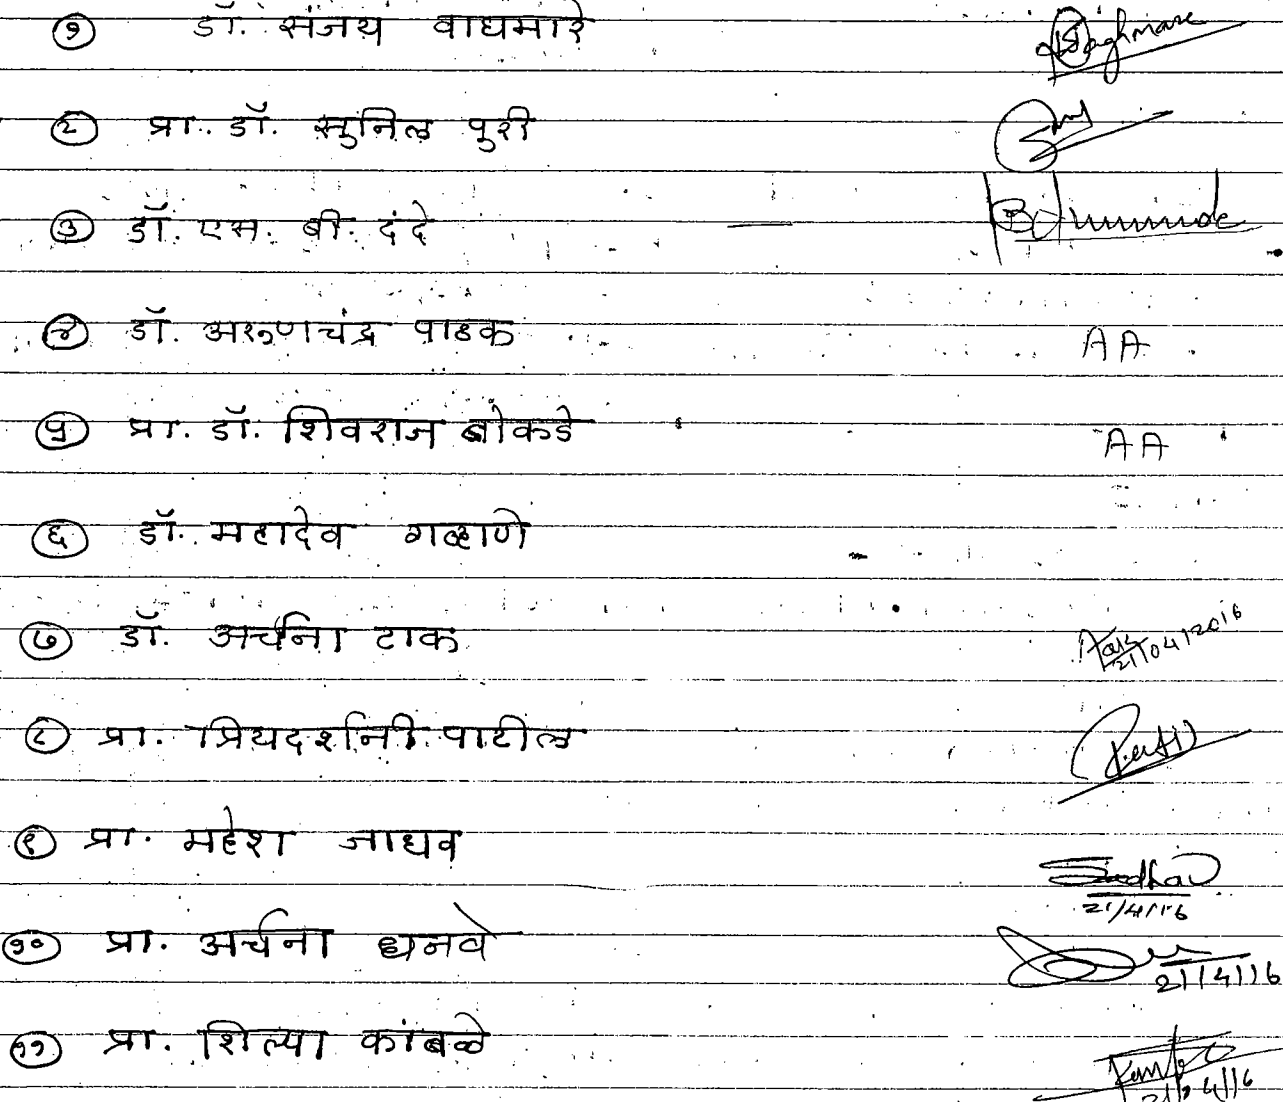 १ डॉ. संजय वाघमारे Waghmare
२ प्रा. डॉ. सुनिल पुरी
३ डॉ. एस. बी. दंदे —
४ डॉ. अरुणचंद्र पाठक AA
५ प्रा. डॉ. शिवराज बोकडे AA
६ डॉ. महादेव गव्हाणे
७ डॉ. अर्चना टाक 21/04/2016
८ प्रा. प्रियदर्शनी पाटील
९ प्रा. महेश जाधव
21/4/16
१० प्रा. अर्चना धनवे 21/4/16
११ प्रा. शिल्पा कांबळे
21/4/16